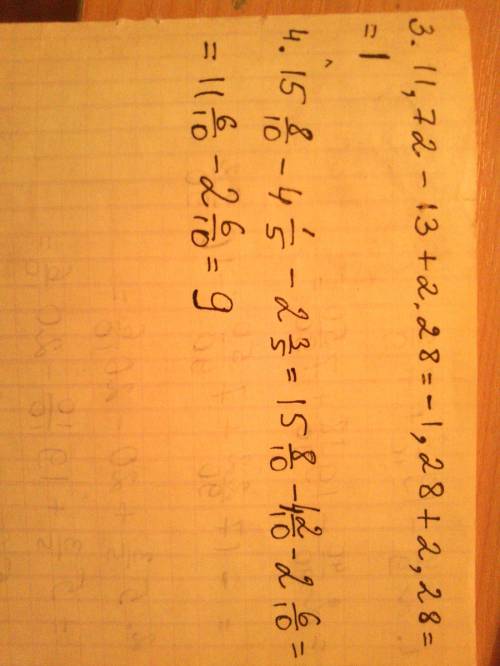 3. 11,72 - 13 + 2,28 = -1,28 + 2,28 =
= 1
4. 15 8/10 - 4 1/5 - 2 3/5 = 15 8/10 - 4 2/10 - 2 6/10 =
= 11 6/10 - 2 6/10 = 9